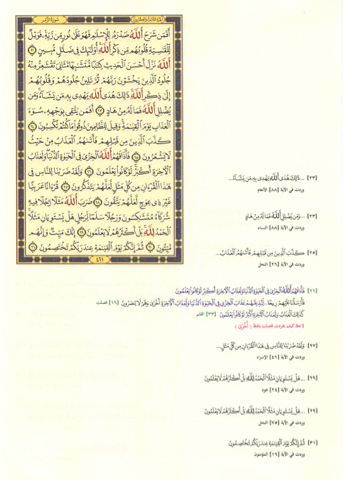 سورة الزمر
أَفَمَن شَرَحَ ٱللَّهُ صَدْرَهُۥ لِلْإِسْلَٰمِ فَهُوَ عَلَىٰ نُورٍ مِّن رَّبِّهِۦ فَوَيْلٌ
لِّلْقَٰسِيَةِ قُلُوبُهُم مِّن ذِكْرِ ٱللَّهِ أُو۟لَٰٓئِكَ فِى ضَلَٰلٍ مُّبِينٍ ٢٢
ٱللَّهُ نَزَّلَ أَحْسَنَ ٱلْحَدِيثِ كِتَٰبًا مُّتَشَٰبِهًا مَّثَانِىَ تَقْشَعِرُّ مِنْهُ
جُلُودُ ٱلَّذِينَ يَخْشَوْنَ رَبَّهُمْ ثُمَّ تَلِينُ جُلُودُهُمْ وَقُلُوبُهُمْ
إِلَىٰ ذِكْرِ ٱللَّهِ ذَٰلِكَ هُدَى ٱللَّهِ يَهْدِى بِهِۦ مَن يَشَآءُ وَمَن
يُضْلِلِ ٱللَّهُ فَمَا لَهُۥ مِنْ هَادٍ ٢٣ أَفَمَن يَتَّقِى بِوَجْهِهِۦ سُوٓءَ
ٱلْعَذَابِ يَوْمَ ٱلْقِيَٰمَةِ وَقِيلَ لِلظَّٰلِمِينَ ذُوقُوا۟ مَا كُنتُمْ تَكْسِبُونَ ٢٤
كَذَّبَ ٱلَّذِينَ مِن قَبْلِهِمْ فَأَتَىٰهُمُ ٱلْعَذَابُ مِنْ حَيْثُ
لَا يَشْعُرُونَ ٢٥ فَأَذَاقَهُمُ ٱللَّهُ ٱلْخِزْىَ فِى ٱلْحَيَوٰةِ ٱلدُّنْيَا وَلَعَذَابُ
ٱلْءَاخِرَةِ أَكْبَرُ لَوْ كَانُوا۟ يَعْلَمُونَ ٢٦ وَلَقَدْ ضَرَبْنَا لِلنَّاسِ فِى
هَٰذَا ٱلْقُرْءَانِ مِن كُلِّ مَثَلٍ لَّعَلَّهُمْ يَتَذَكَّرُونَ ٢٧ قُرْءَانًا عَرَبِيًّا
غَيْرَ ذِى عِوَجٍ لَّعَلَّهُمْ يَتَّقُونَ ٢٨ ضَرَبَ ٱللَّهُ مَثَلًا رَّجُلًا فِيهِ
شُرَكَآءُ مُتَشَٰكِسُونَ وَرَجُلًا سَلَمًا لِّرَجُلٍ هَلْ يَسْتَوِيَانِ مَثَلًا
ٱلْحَمْدُ لِلَّهِ بَلْ أَكْثَرُهُمْ لَا يَعْلَمُونَ ٢٩ إِنَّكَ مَيِّتٌ وَإِنَّهُم
مَّيِّتُونَ ٣٠ ثُمَّ إِنَّكُمْ يَوْمَ ٱلْقِيَٰمَةِ عِندَ رَبِّكُمْ تَخْتَصِمُونَ ٣١
٤٦١
[٢٣] ...ذَٰلِكَ هُدَى ٱللَّهِ يَهْدِى بِهِۦ مَن يَشَآءُ...
وردت في الآية [٨٨] الأنعام
[٢٣] ...وَمَن يُضْلِلِ ٱللَّهُ فَمَا لَهُۥ مِنْ هَادٍ
وردت في الآية [٨٨] النساء
[٢٥] كَذَّبَ ٱلَّذِينَ مِن قَبْلِهِمْ فَأَتَىٰهُمُ ٱلْعَذَابُ...
وردت في الآية [٢٦] النحل
[٢٦] فَأَذَاقَهُمُ ٱللَّهُ ٱلْخِزْىَ فِى ٱلْحَيَوٰةِ ٱلدُّنْيَا وَلَعَذَابُ ٱلْءَاخِرَةِ أَكْبَرُ لَوْ كَانُوا۟ يَعْلَمُونَ
فَأَرْسَلْنَا عَلَيْهِمْ رِيحًا...لِّنُذِيقَهُمْ عَذَابَ ٱلْخِزْىِ فِى ٱلْحَيَوٰةِ ٱلدُّنْيَا وَلَعَذَابُ ٱلْءَاخِرَةِ أَخْزَىٰ وَهُمْ لَا يُنصَرُونَ [١٦] فصلت
كَذَٰلِكَ ٱلْعَذَابُ وَلَعَذَابُ ٱلْءَاخِرَةِ أَكْبَرُ لَوْ كَانُوا۟ يَعْلَمُونَ [٣٣] القلم
[٢٧] وَلَقَدْ ضَرَبْنَا لِلنَّاسِ فِى هَٰذَا ٱلْقُرْءَانِ مِن كُلِّ مَثَلٍ...
وردت في الآية [٤١] الإسراء
[٢٩] ...هَلْ يَسْتَوِيَانِ مَثَلًا ٱلْحَمْدُ لِلَّهِ بَلْ أَكْثَرُهُمْ لَا يَعْلَمُونَ
وردت في الآية [٢٤] هود
[٢٩] ...هَلْ يَسْتَوِيَانِ مَثَلًا ٱلْحَمْدُ لِلَّهِ بَلْ أَكْثَرُهُمْ لَا يَعْلَمُونَ
وردت في الآية [٧٥] النحل
[٣١] ثُمَّ إِنَّكُمْ يَوْمَ ٱلْقِيَٰمَةِ عِندَ رَبِّكُمْ تَخْتَصِمُونَ
وردت في الآية [١٦] المؤمنون